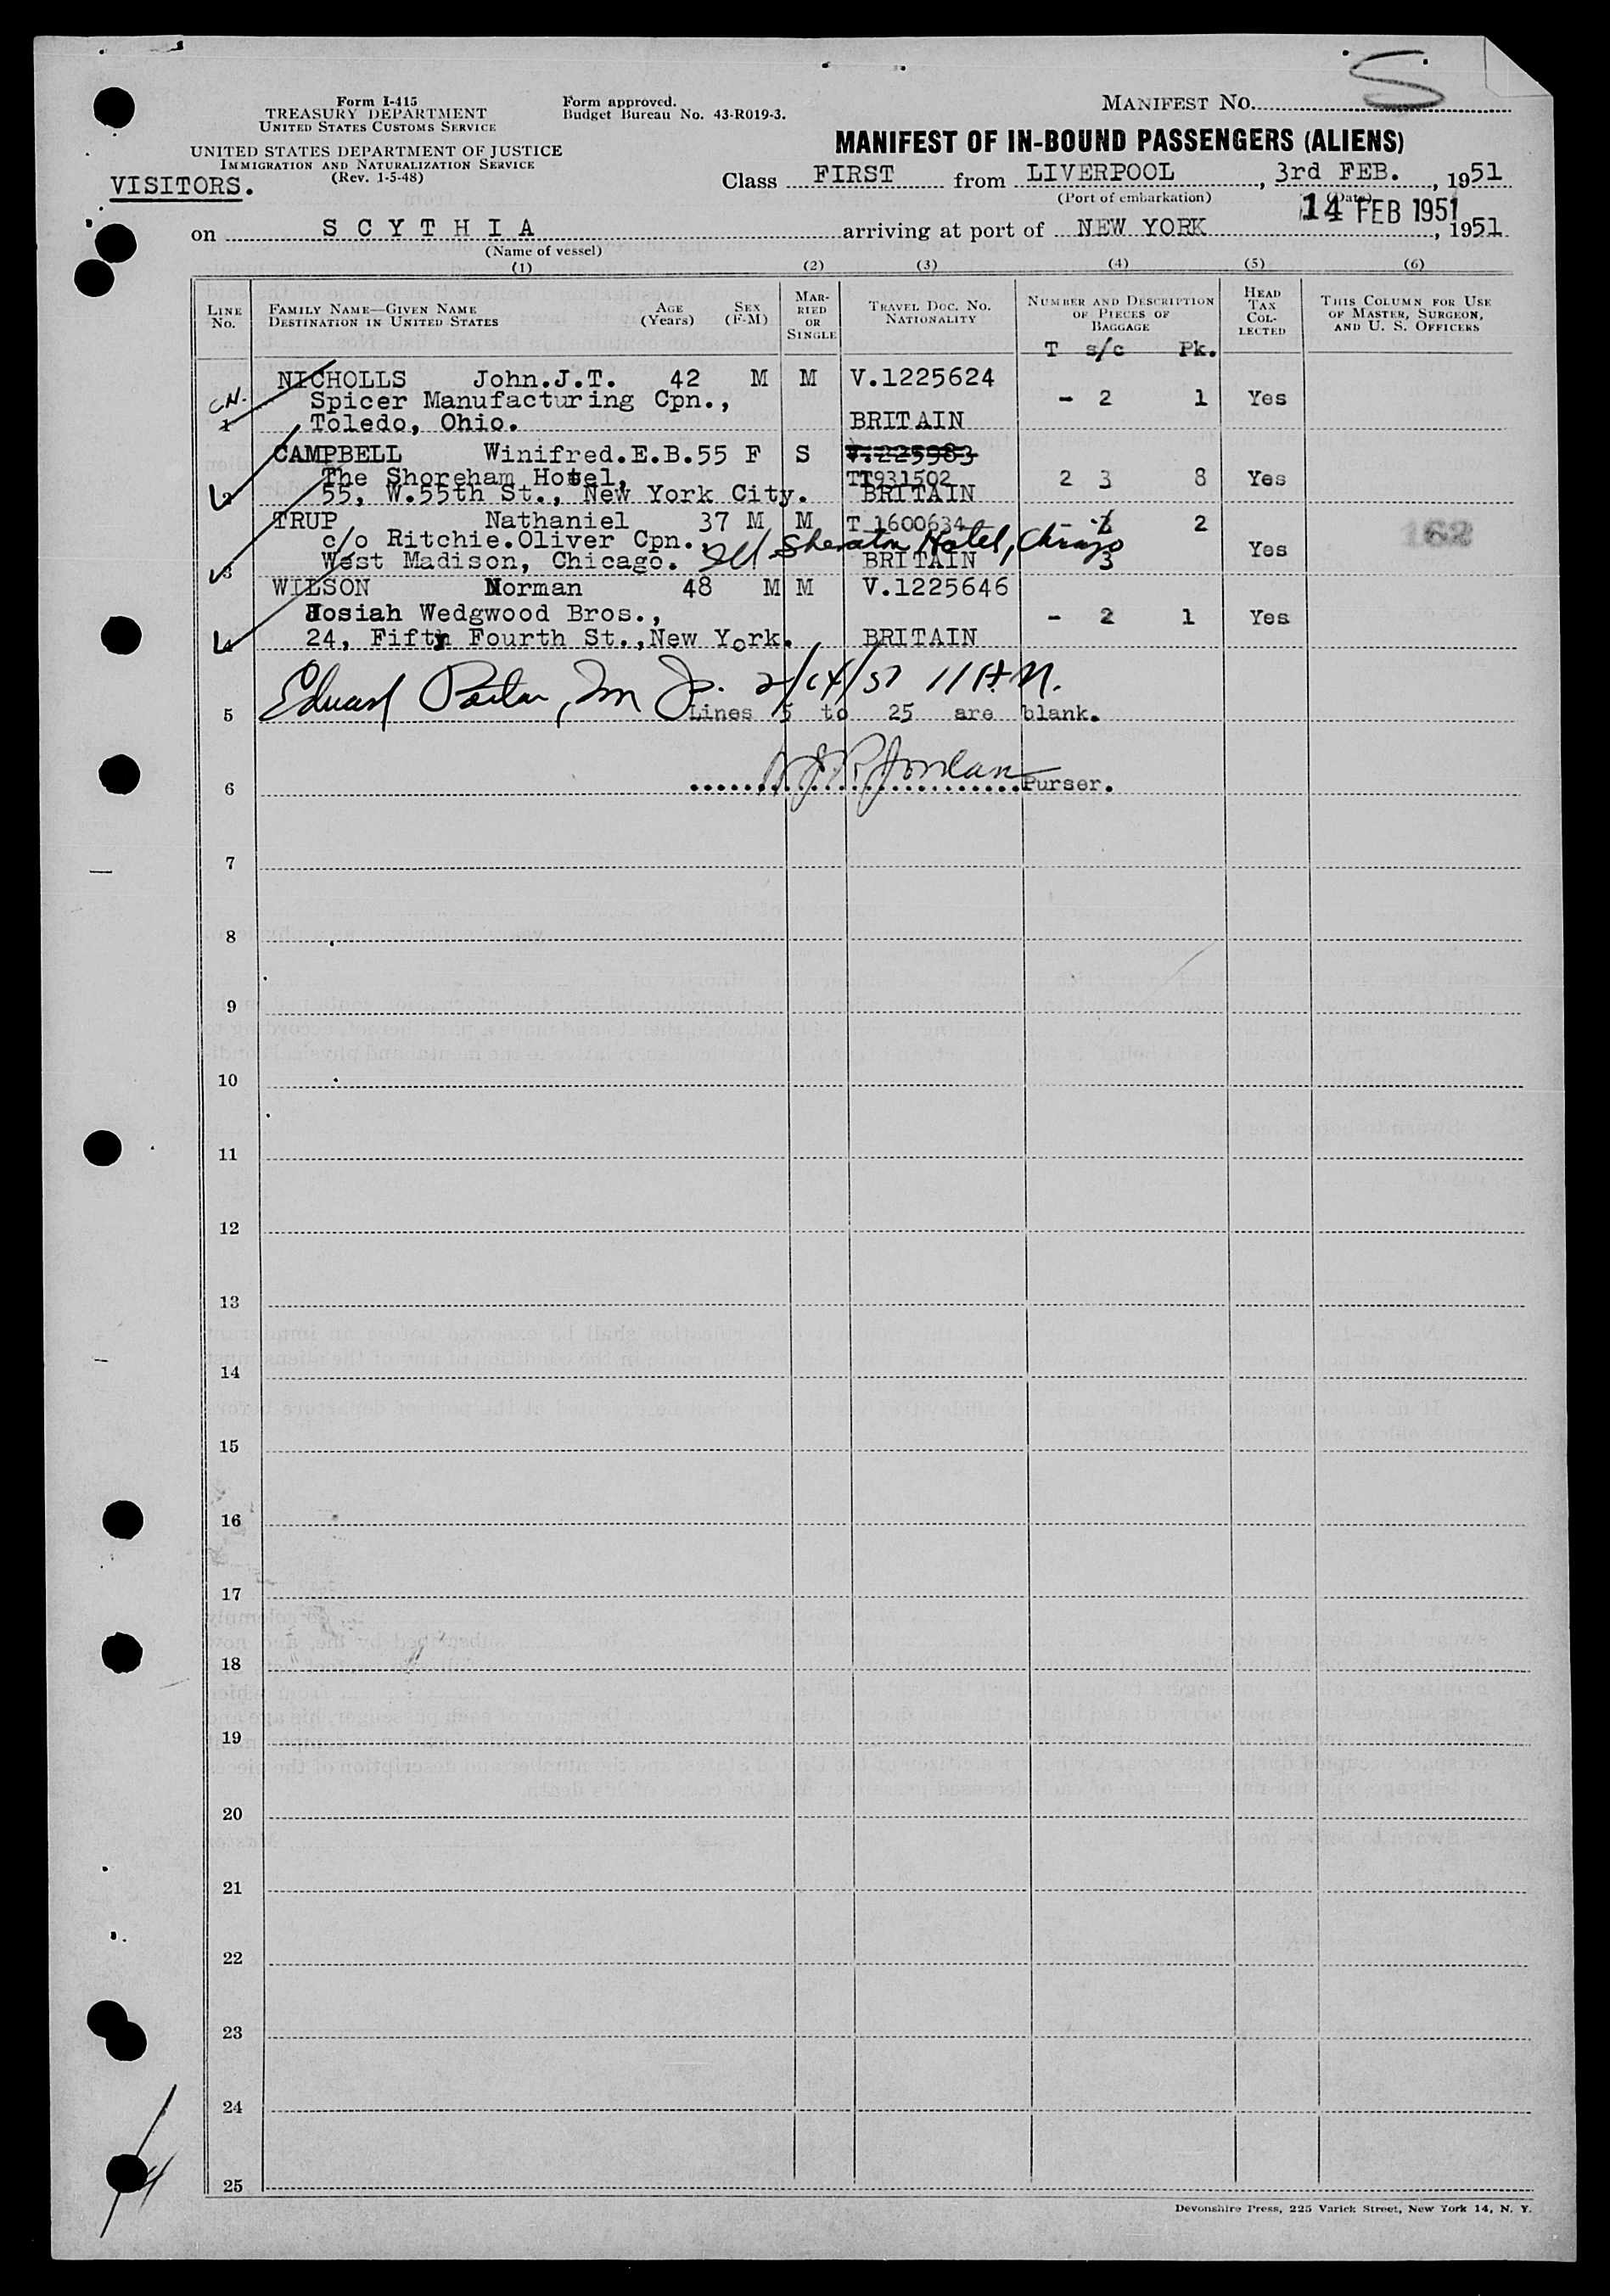 S
Form I-415
TREASURY DEPARTMENT
UNITED STATES CUSTOMS SERVICE
UNITED STATES DEPARTMENT OF JUSTICE
IMMIGRATION AND NATURALIZATION SERVICE
(Rev. 1-5-48)
VISITORS.
Form approved.
Budget Bureau No. 43-R019-3.
MANIFEST NO.
MANIFEST OF IN-BOUND PASSENGERS (ALIENS)
Class FIRST from LIVERPOOL, 3rd FEB., 1951
(Port of embarkation) (Date)
14 FEB 1951
on S C Y T H I A arriving at port of NEW YORK, 1951
(Name of vessel)
(1) (2) (3) (4) (5) (6)
LINE No. FAMILY NAME—GIVEN NAME DESTINATION IN UNITED STATES AGE (Years) SEX (F-M) MARRIED OR SINGLE TRAVEL DOC. NO. NATIONALITY NUMBER AND DESCRIPTION OF PIECES OF BAGGAGE HEAD TAX COLLECTED THIS COLUMN FOR USE OF MASTER, SURGEON, AND U. S. OFFICERS
T s/c Pk.
NICHOLLS John.J.T. 42 M M V.1225624
C.N. Spicer Manufacturing Cpn., - 2 1 Yes
1 Toledo, Ohio. BRITAIN
CAMPBELL Winifred.E.B.55 F S V.225983
The Shoreham Hotel, TT931502 2 3 8 Yes
2 55, W.55th St., New York City. BRITAIN
TRUP Nathaniel 37 M M T 1600634 - 2
c/o Ritchie.Oliver Cpn., Sheraton Hotel, Chicago Yes 162
3 West Madison, Chicago. BRITAIN 3
WILSON Norman 48 M M V.1225646
Josiah Wedgwood Bros., - 2 1 Yes
4 24, Fifty Fourth St.,New York. BRITAIN
Edward 2/14/51 11 A.M.
5 Lines 5 to 25 are blank.
Jordan
6 Purser.
7
8
9
10
11
12
13
14
15
16
17
18
19
20
21
22
23
24
25
Devonshire Press, 225 Varick Street, New York 14, N. Y.